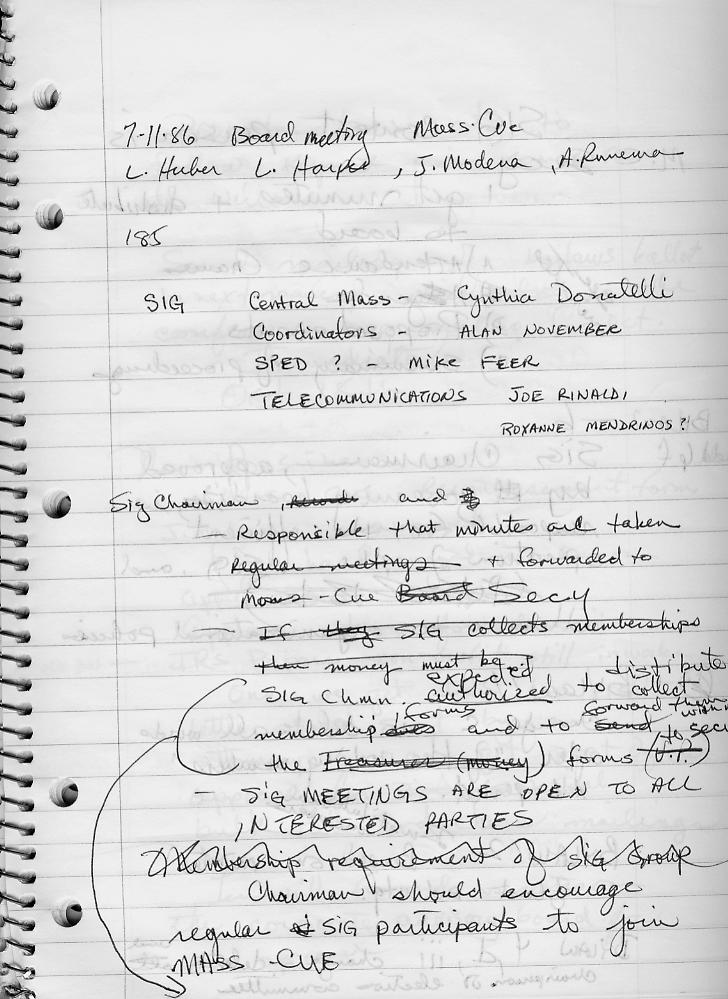 7-11-86 Board meeting Mass-Cue
L. Huber L. Harpe , J. Modena , A. Runema
185
SIG Central Mass - Cynthia Donatelli
Coordinators - ALAN NOVEMBER
SPED ? - MIKE FEER
TELECOMMUNICATIONS JOE RINALDI,
ROXANNE MENDRINOS?
Sig Chairman , and
- Responsible that minutes are taken
Regular meetings + forwarded to
Mass-Cue Board Secy
- If they SIG collects memberships
then money must be
expected distribute
SIG Chmn. authorized to collect
forms forward them within
membership dues and to send to sec
the Treasurer (money) forms
- SIG MEETINGS ARE OPEN TO ALL
INTERESTED PARTIES
Membership requirement of SIG Group
Chairman should encourage
regular SIG participants to join
MASS-CUE